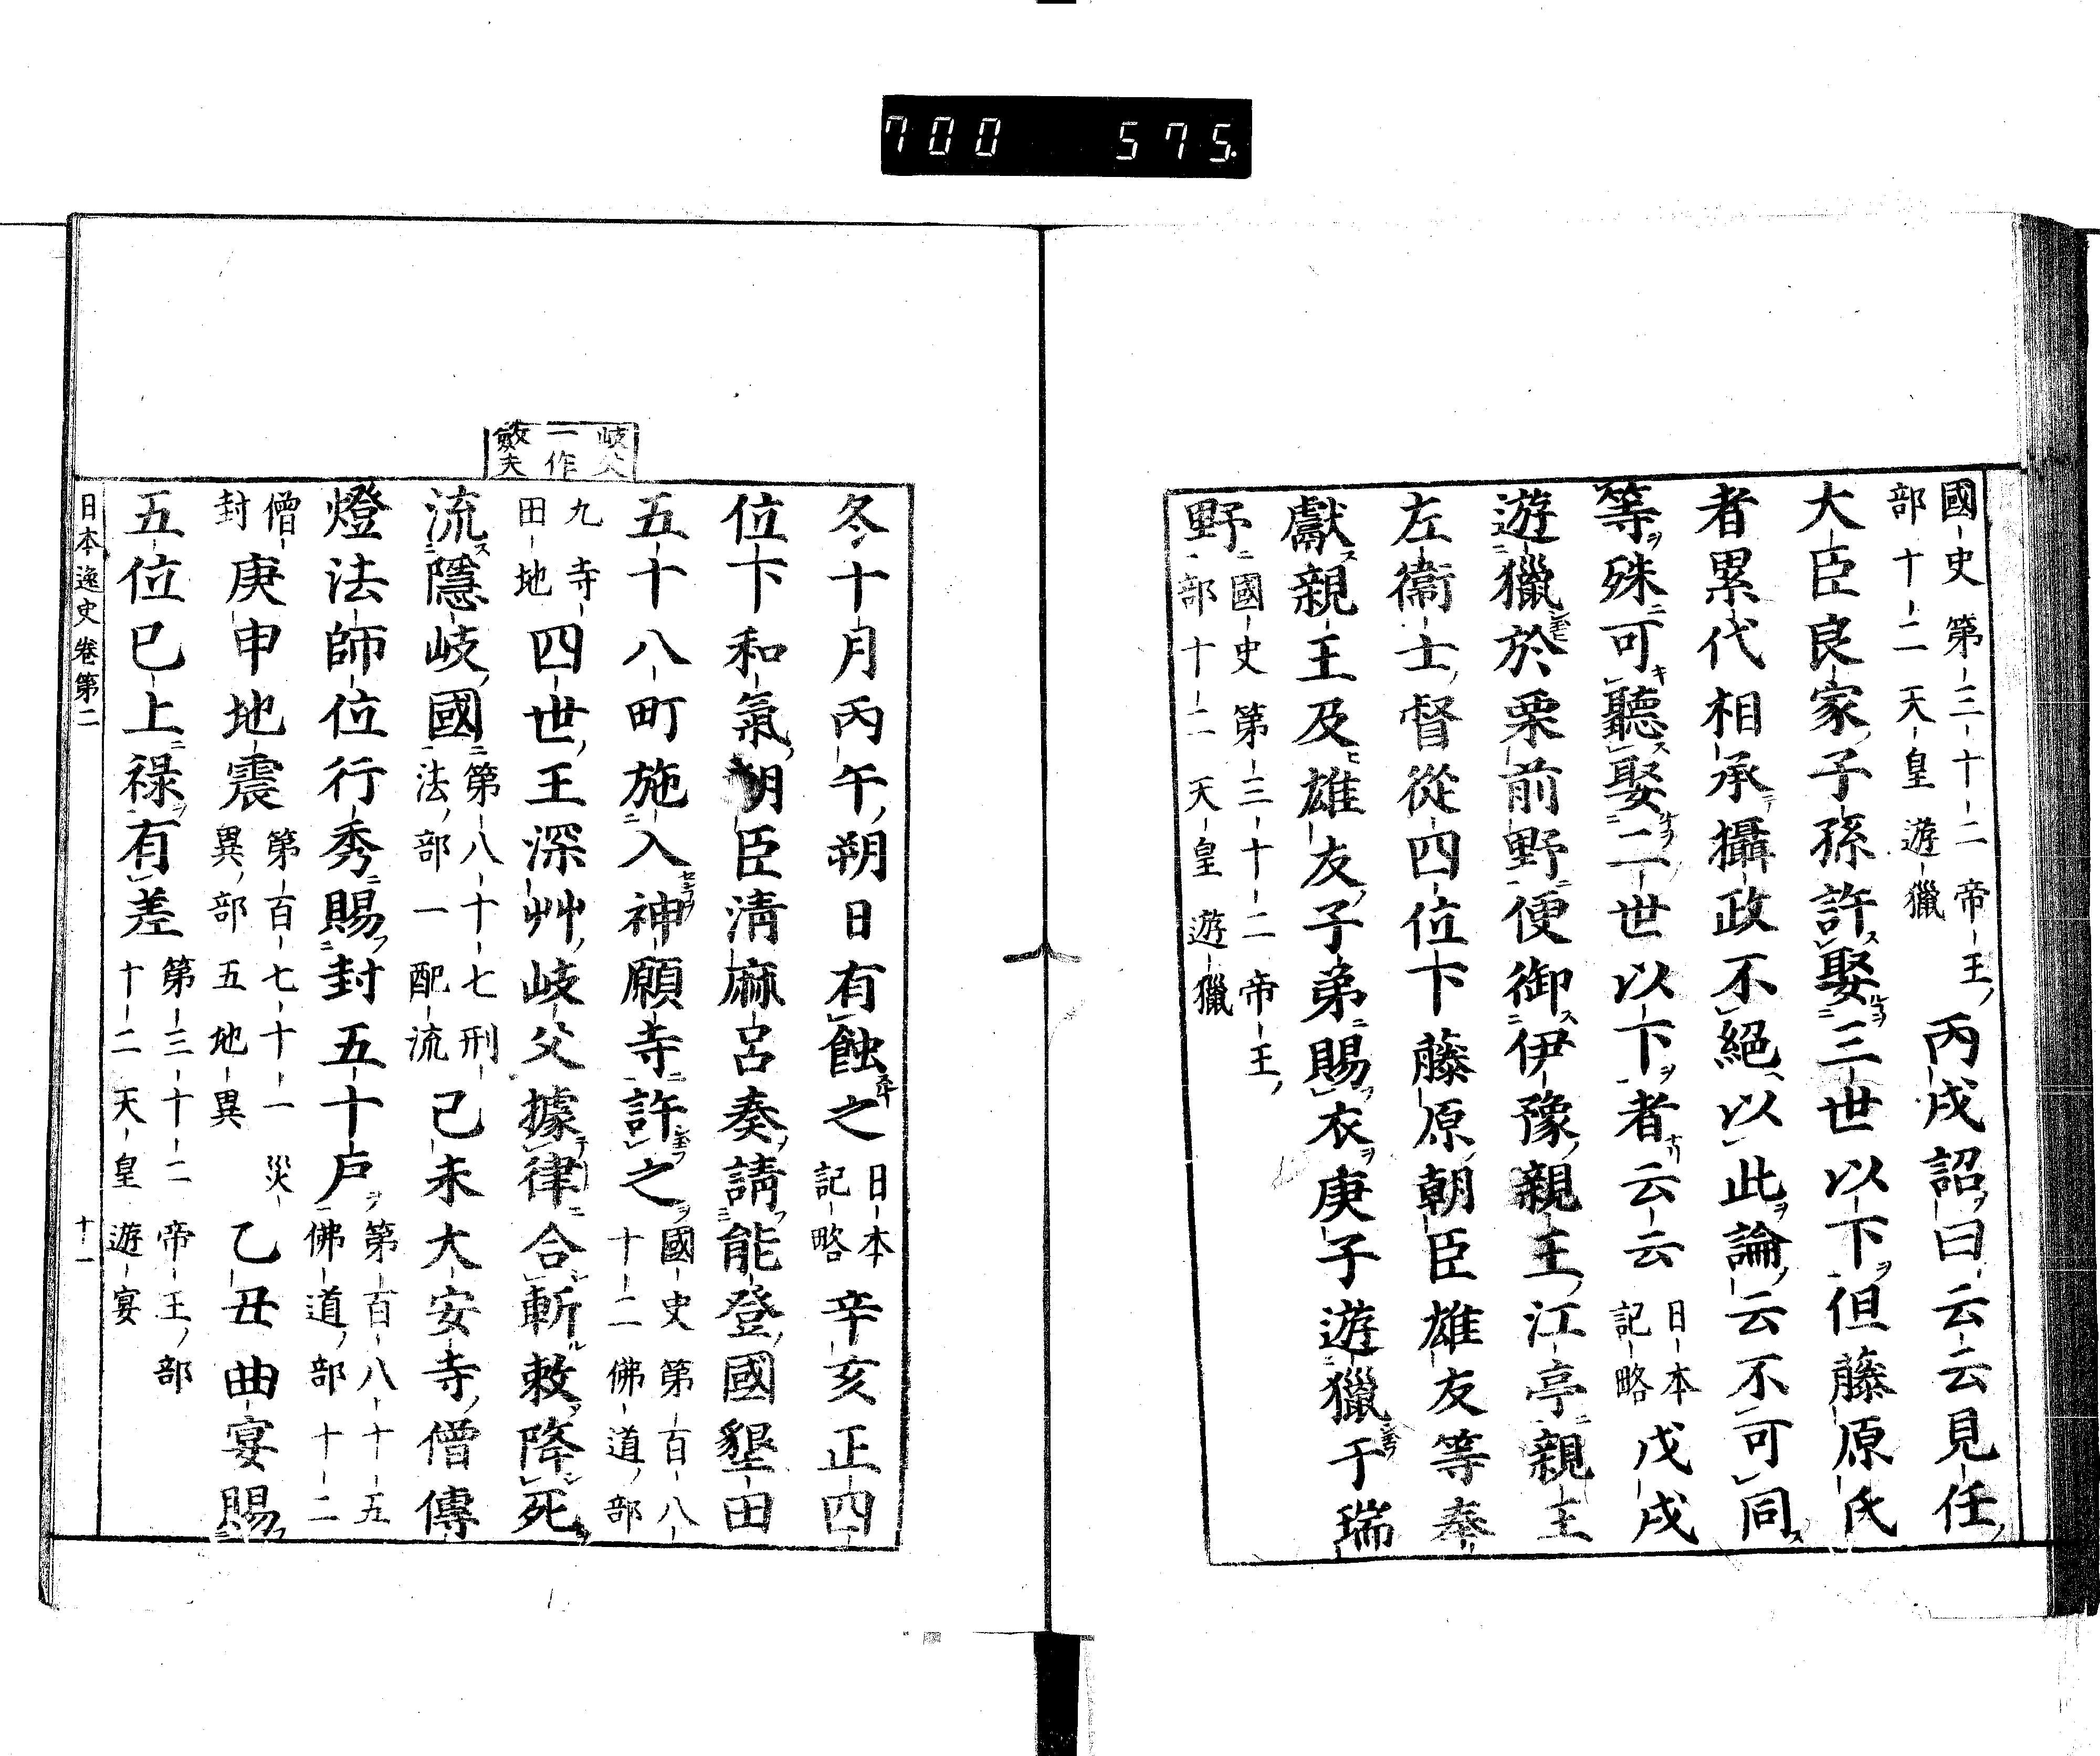 700 575.
國史第三十二帝王
部十二天皇遊獵
丙戌詔曰云云見任
大臣良家子孫許娶三世以下但藤原氏
者累代相承攝政不絕以此論云不可同
等殊可聽娶二世以下者云云
日本
記略
戊戌
遊獵於栗前野便御伊豫親王江亭親王
左衞士督從四位下藤原朝臣雄友等奉
獻親王及雄友子弟賜衣庚子遊獵于瑞
野
國史第三十二帝王
部十二天皇遊獵
冬十月丙午朔日有蝕之
日本
記略
辛亥正四
位下和氣朝臣淸麻呂奏請能登國墾田
五十八町施入神願寺許之
國史第百八
十二佛道部
九寺
田地
四世王深艸岐父據律合斬敕降死
流隱岐國
第八十七刑
法部一配流
己未大安寺僧傳
燈法師位行秀賜封五十戶
第百八十五
佛道部十二
僧
封
庚申地震
第百七十一災
異部五地異
乙丑曲宴賜
五位已上祿有差
第三十二帝王部
十二天皇遊宴
岐父
一作
夫
日本逸史卷第二
十一